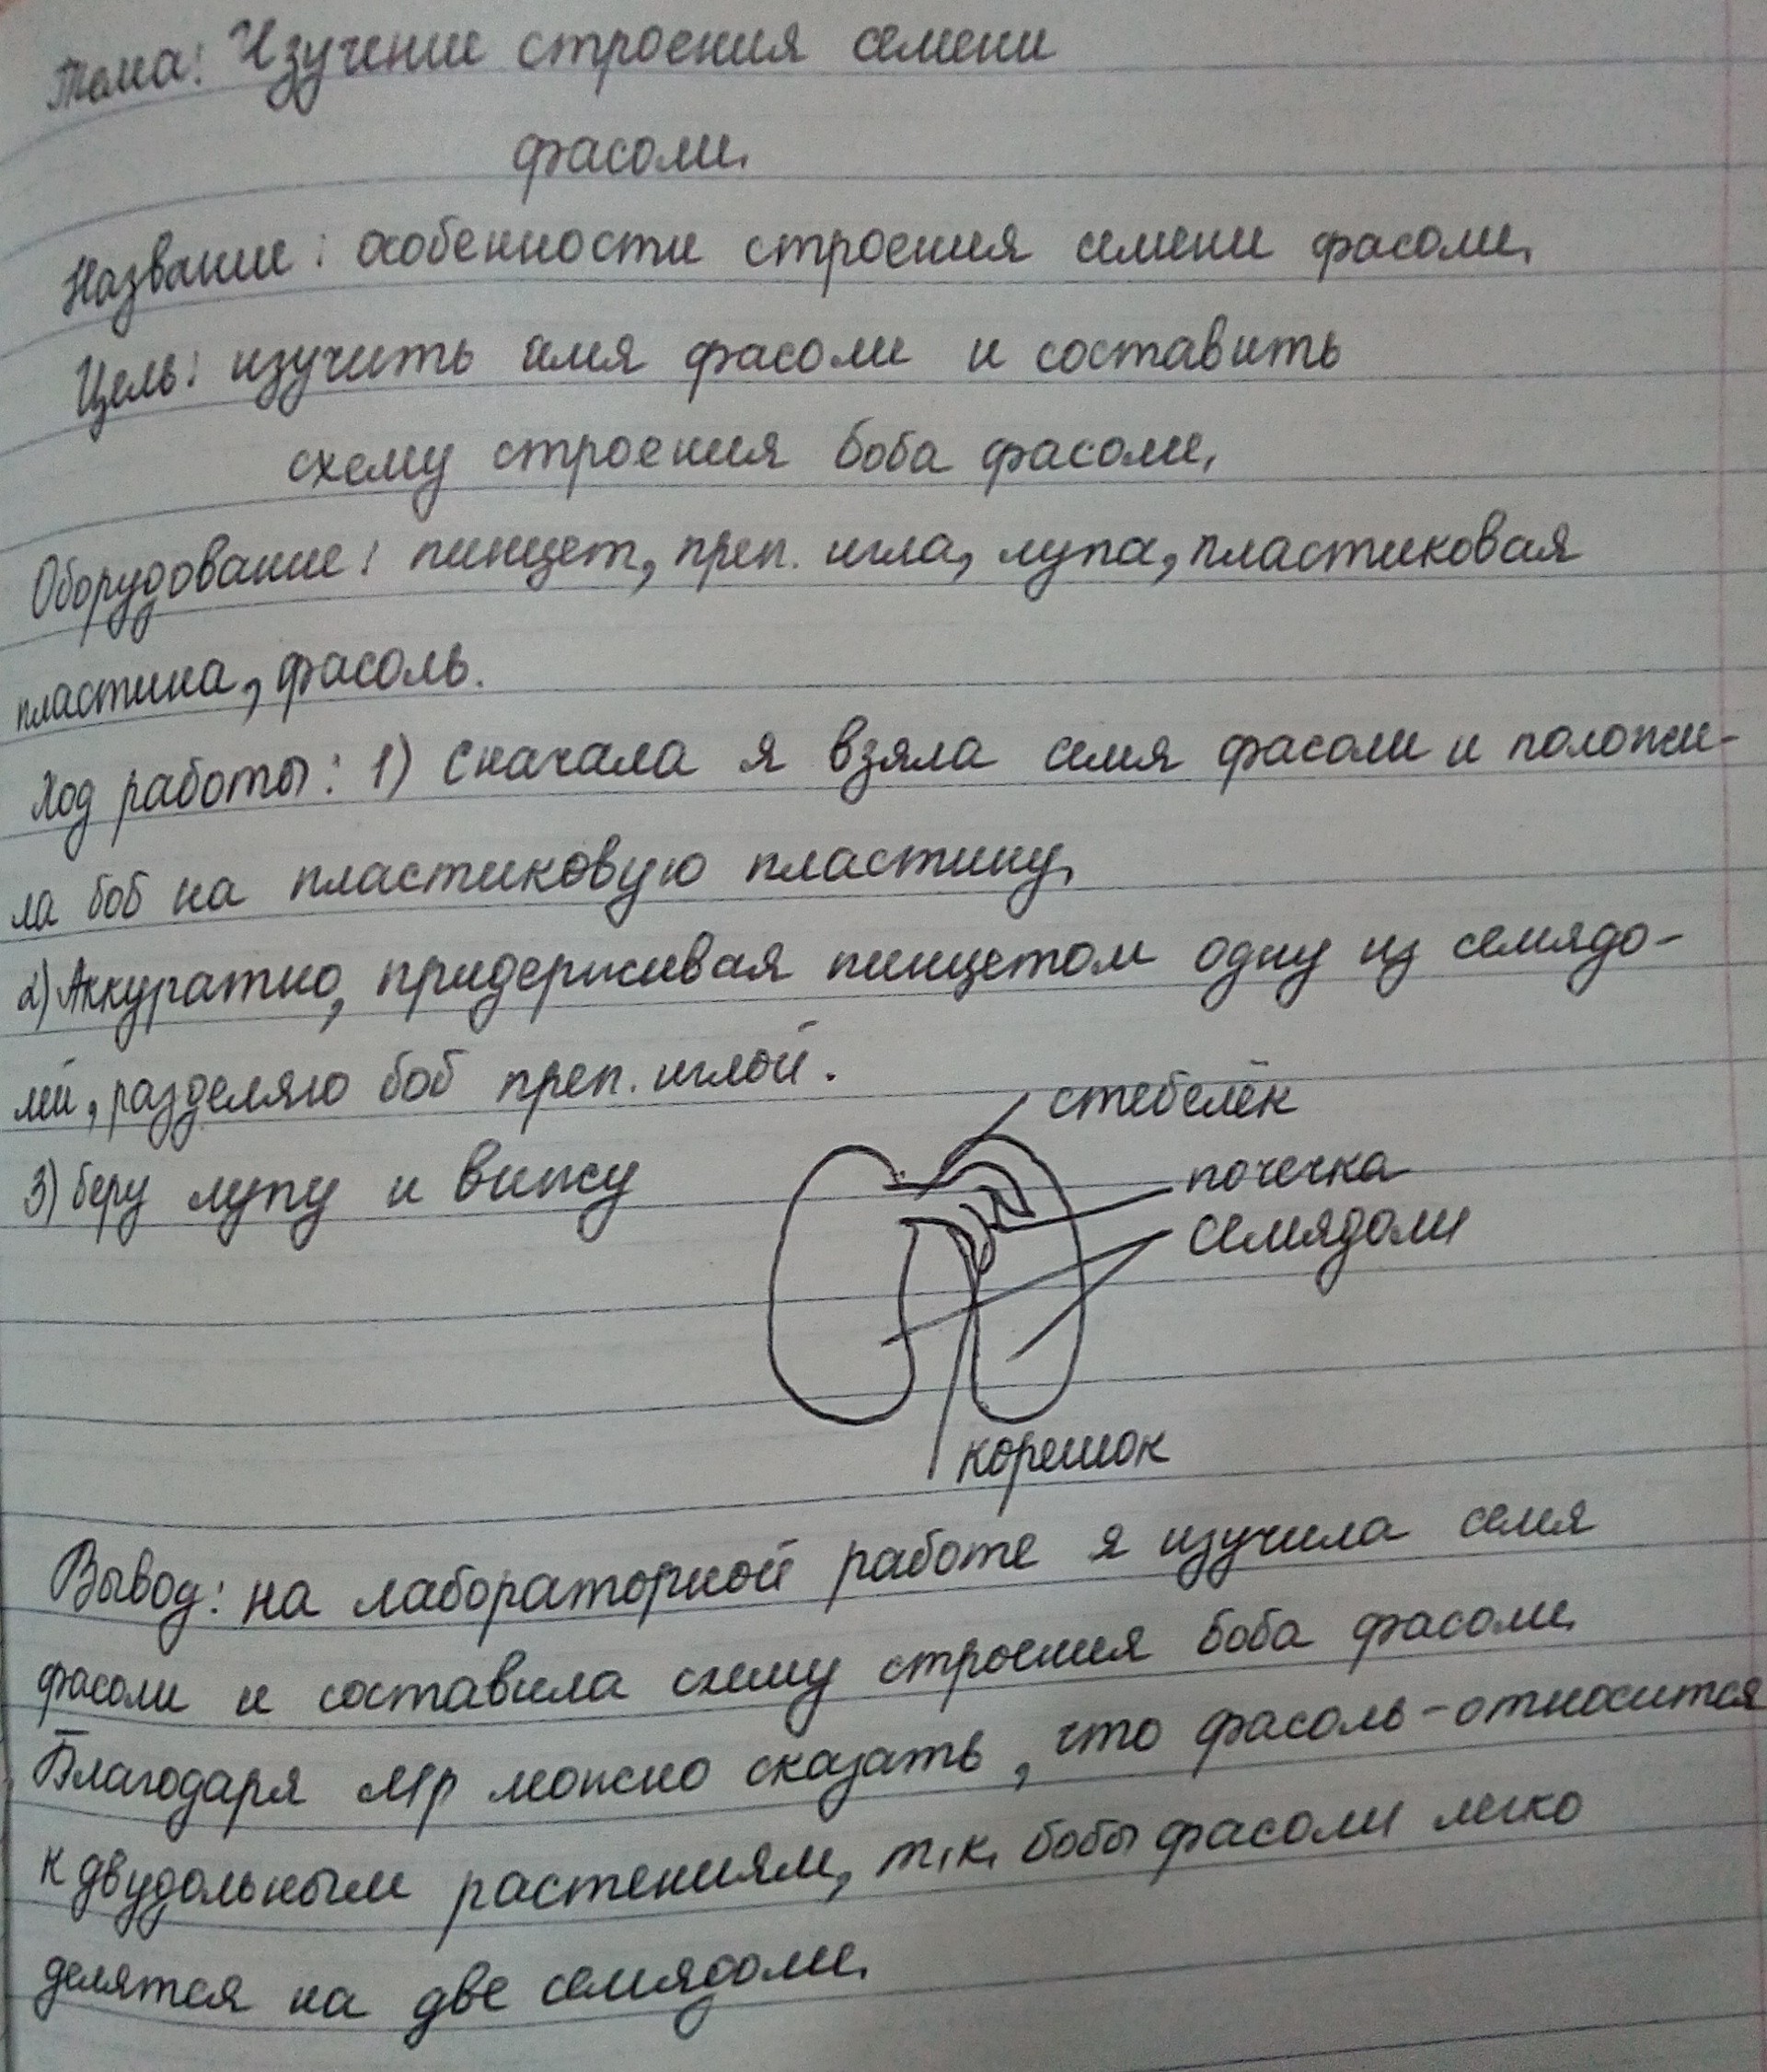 Тема: Изучение строения семени
фасоли.
Название: особенности строения семени фасоли.
Цель: изучить семя фасоли и составить
схему строения боба фасоли.
Оборудование: пинцет, преп. игла, лупа, пластиковая
пластина, фасоль.
Ход работы: 1) Сначала я взяла семя фасоли и положи-
ла боб на пластиковую пластину.
2) Аккуратно, придерживая пинцетом одну из семядо-
лей, разделяю боб преп. иглой.
стебелёк
3) беру лупу и вижу
почечка
семядоли
корешок
Вывод: на лабораторной работе я изучила семя
фасоли и составила схему строения боба фасоли.
Благодаря л/р можно сказать, что фасоль - относится
к двудольным растениям, т.к. бобы фасоли легко
делятся на две семядоли.